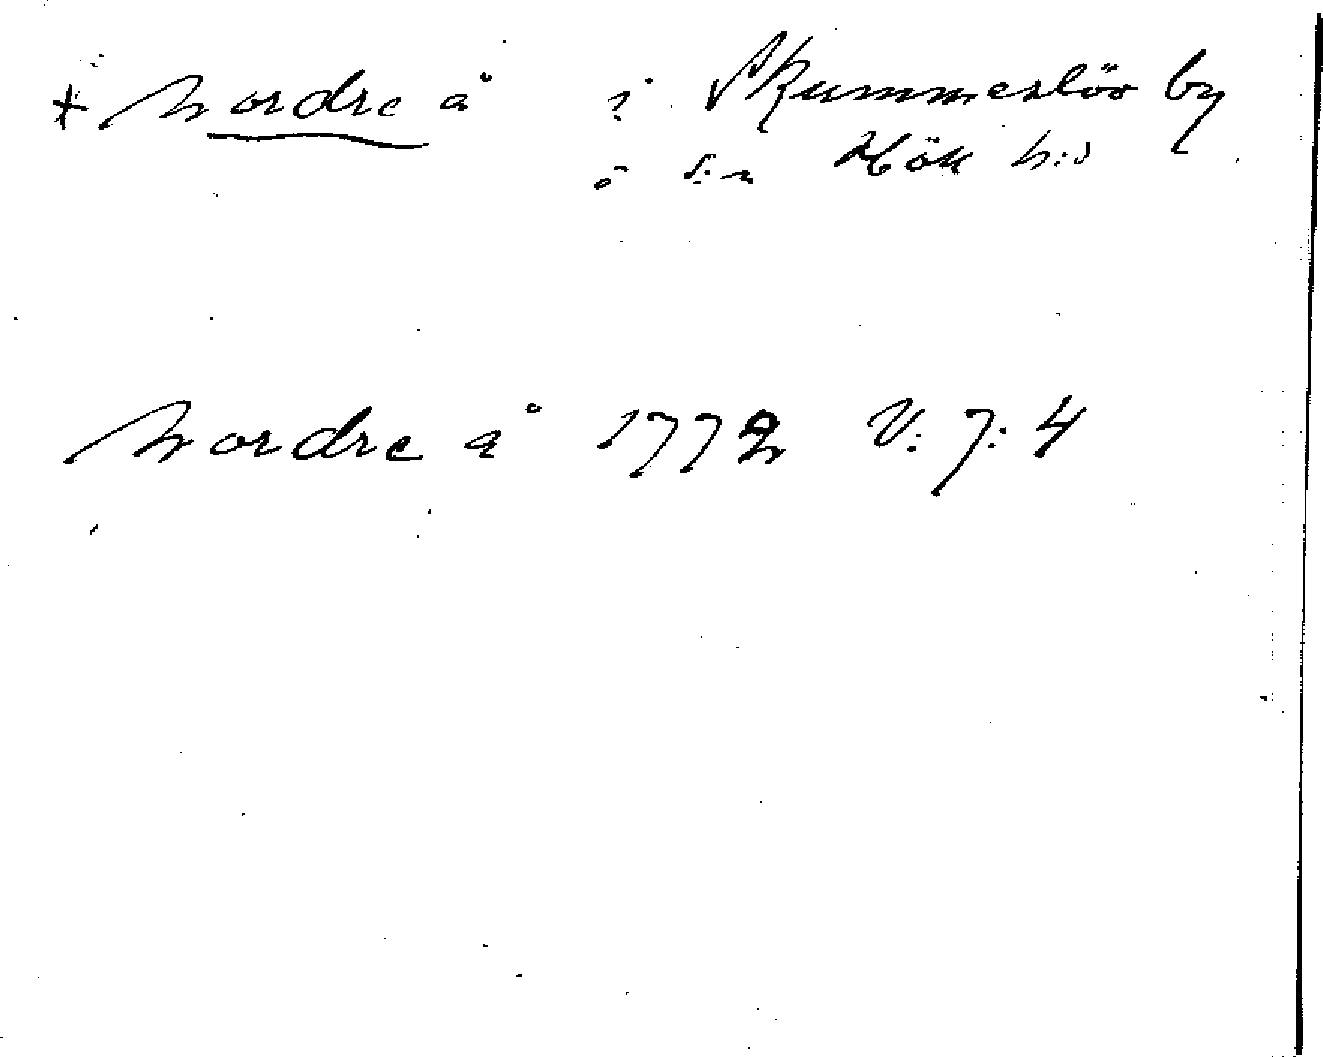 + Nordre å i Skummeslöv by
o s:n Hök h:d
Nordre å 1772 V: 7: 4